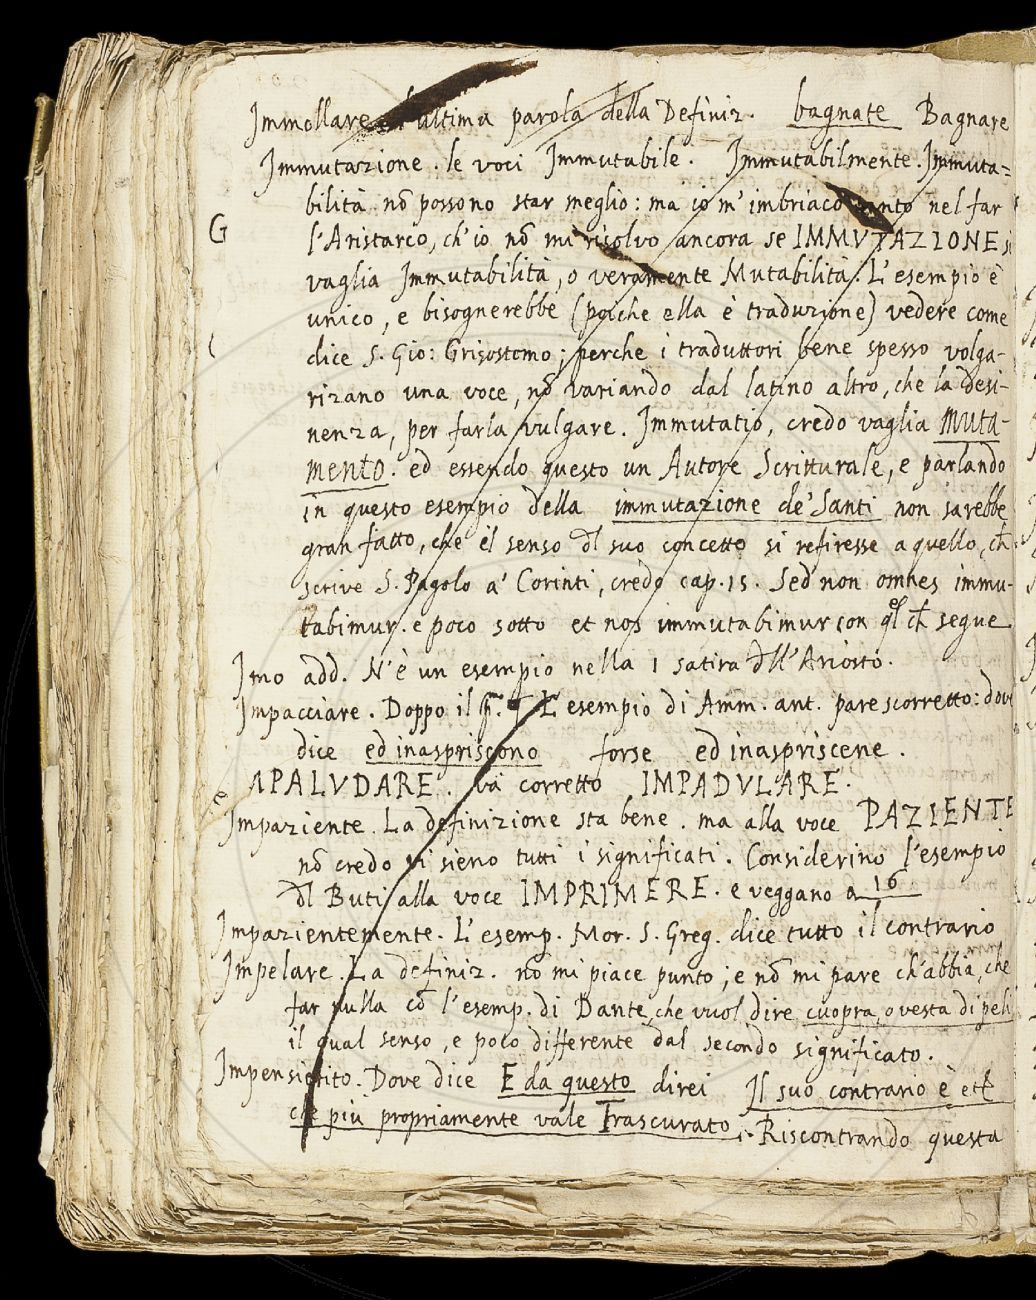 Immollare l'ultima parola della Definiz. bagnate Bagnare
Immutazione. le voci Immutabile. Immutabilmente. Immuta=
bilità nō possono star meglio: ma io m'imbriaco tanto nel far
G l'Aristarco, ch'io nō mi risolvo ancora se IMMVTAZIONE si
vaglia Immutabilità, o veramente Mutabilità. L'esempio è
unico, e bisognerebbe (poiche ella è traduzione) vedere come
dice S. Gio: Grisostomo; perche i traduttori bene spesso volga-
rizano una voce, nō variando dal latino altro, che la desi-
nenza, per farla vulgare. Immutatio, credo vaglia muta-
mento. ed essendo questo un Autore Scritturale, e parlando
in questo esempio della immutazione de' Santi non sarebbe
gran fatto, che el senso dl suo concetto si referesse a quello, ch̄
scrive S. Pagolo a' Corinti, credo cap. 15. Sed non omnes immu-
tabimur. e poco sotto et nos immutabimur con ql ch̄ segue
Imo add. N'è un esempio nella 1 satira dll'Ariosto.
Impacciare. Doppo il §. L'esempio di Amm. ant. pare scorretto: dove
dice ed inaspriscono forse ed inaspriscene.
APALVDARE. và corretto IMPADVLARE.
Impaziente. La definizione sta bene. ma alla voce PAZIENTE
nō credo vi sieno tutti i significati. Considerino l'esempio
dl Buti alla voce IMPRIMERE. e veggano a 16
Impazientemente. L'esemp. Mor. S. Greg. dice tutto il contrario
Impelare. La definiz. nō mi piace punto; e nō mi pare ch'abbia, che
far nulla cō l'esemp. di Dante, che vuol dire cuopra, o vesta di peli
il qual senso, e poco differente dal secondo significato.
Impensierito. Dove dice E da questo direi Il suo contrario è etc̄
che più propriamente vale Trascurato. Riscontrando questa